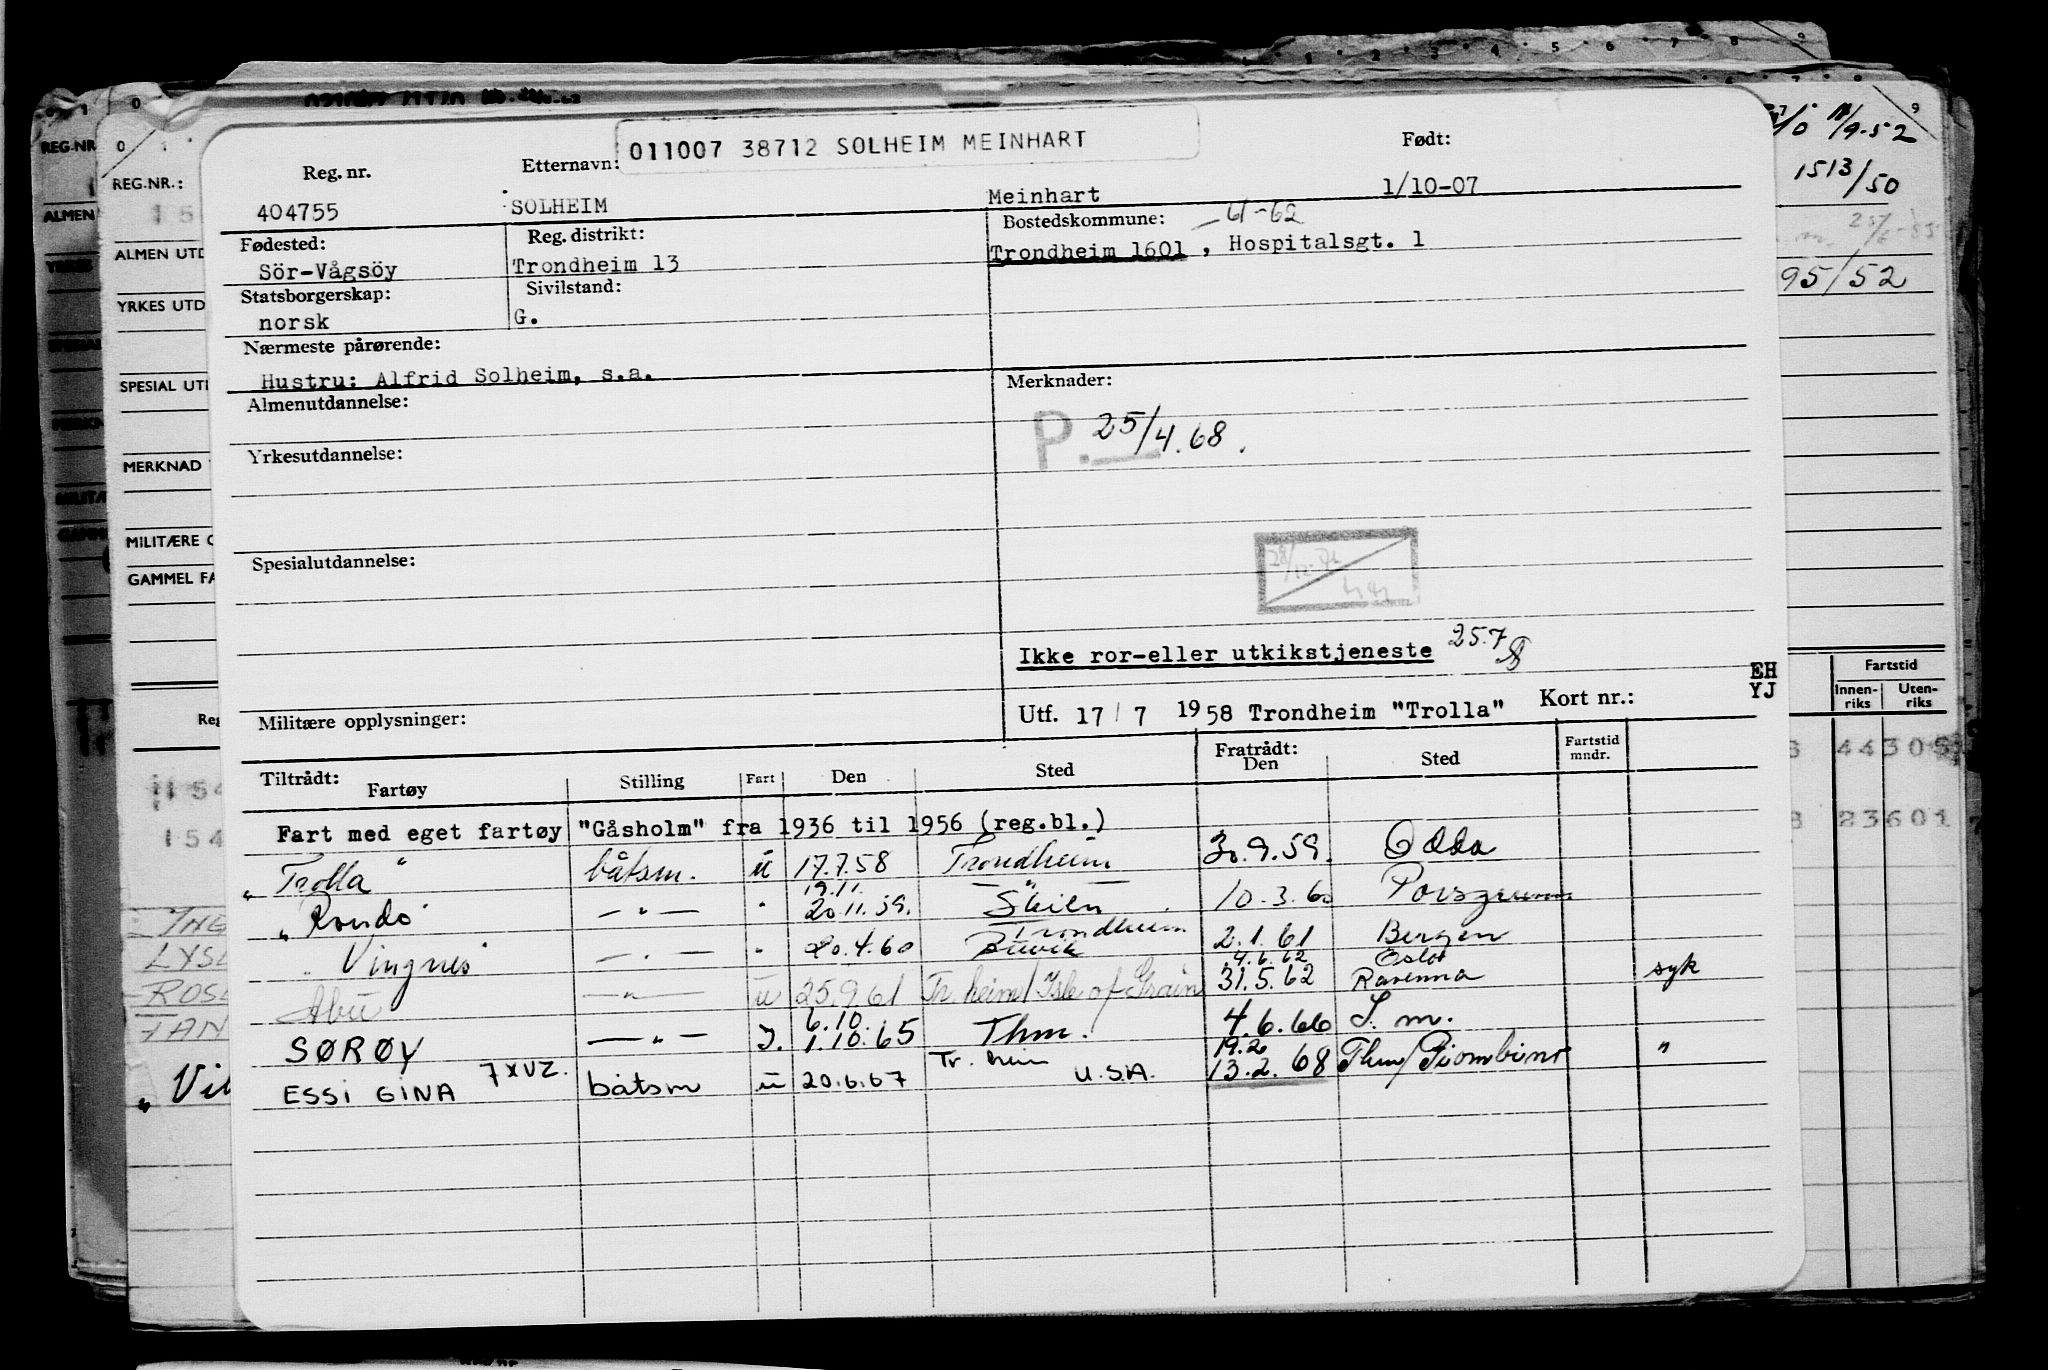 011007 38712 SOLHEIM MEINHART
Reg. nr. Etternavn: Født:
404755 SOLHEIM Meinhart 1/10-07
Fødested: Reg. distrikt: Bostedskommune: 61-62
Sör-Vågsöy Trondheim 13 Trondheim 1601 , Hospitalsgt. 1
Statsborgerskap: Sivilstand:
norsk G.
Nærmeste pårørende:
Hustru: Alfrid Solheim, s.a.
Almenutdannelse: Merknader:
P. 25/4.68.
Yrkesutdannelse:
Spesialutdannelse:
Ikke ror-eller utkikstjeneste 25.7
Militære opplysninger: Utf. 17/7 1958 Trondheim "Trolla" Kort nr.:
EH
YJ
Tiltrådt: Fartøy Stilling Fart Den Sted Fratrådt: Den Sted Fartstid mndr.
Fart med eget fartøy "Gåsholm" fra 1936 til 1956 (reg.bl.)
"Trolla" båtsm. u 17.7.58 Trondheim 30.9.59. Odda
19.11.
"Rondo" — " — " 20.11.59. Skien 10.3.60 Porsgrunn
Trondheim
Vingnes — " — " 20.4.60 Buvik 2.1.61 Bergen
4.6.62 Oslo
Abu — " — u 25.9.61 Tr.heim/Isle of Grain 31.5.62 Ravenna syk
6.10.
SØRØY — " — I. 1.10.65 Thm. 4.6.66 S.m.
19.2
ESSI GINA 7XVZ. båtsm u 20.6.67 Tr.heim U.S.A. 13.2.68 Thm/Piombino "
REG.NR.:
ALMEN UTD
YRKES UTD
SPECIAL UTD
MERKNAD
MILITÆRE O
GAMMEL FA
11/9-52
1513/50
95/52
Fartstid
Innen-riks Uten-riks
44305
23601
154
ROSE
"Vil